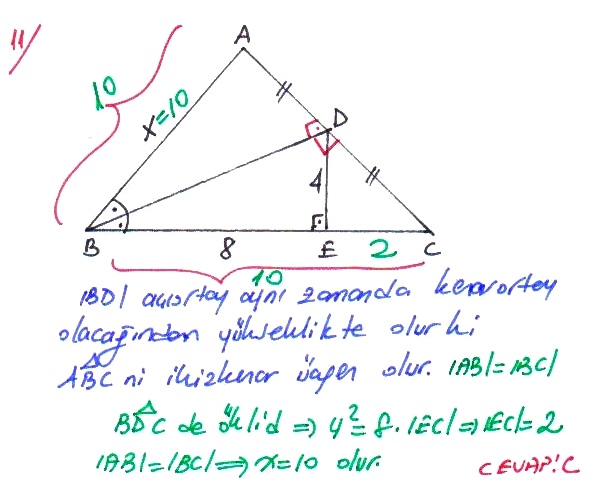 11/
A
10
x=10
D
4
B 8 E 2 C
10
|BD| açıortay aynı zamanda kenarortay
olacağından yükseklikte olur ki
ABC ni ikizkenar üçgen olur. |AB|=|BC|
BDC de öklid ⇒ 4²=8.|EC| ⇒ |EC|=2
|AB|=|BC| ⇒ x=10 olur.
CEVAP:C